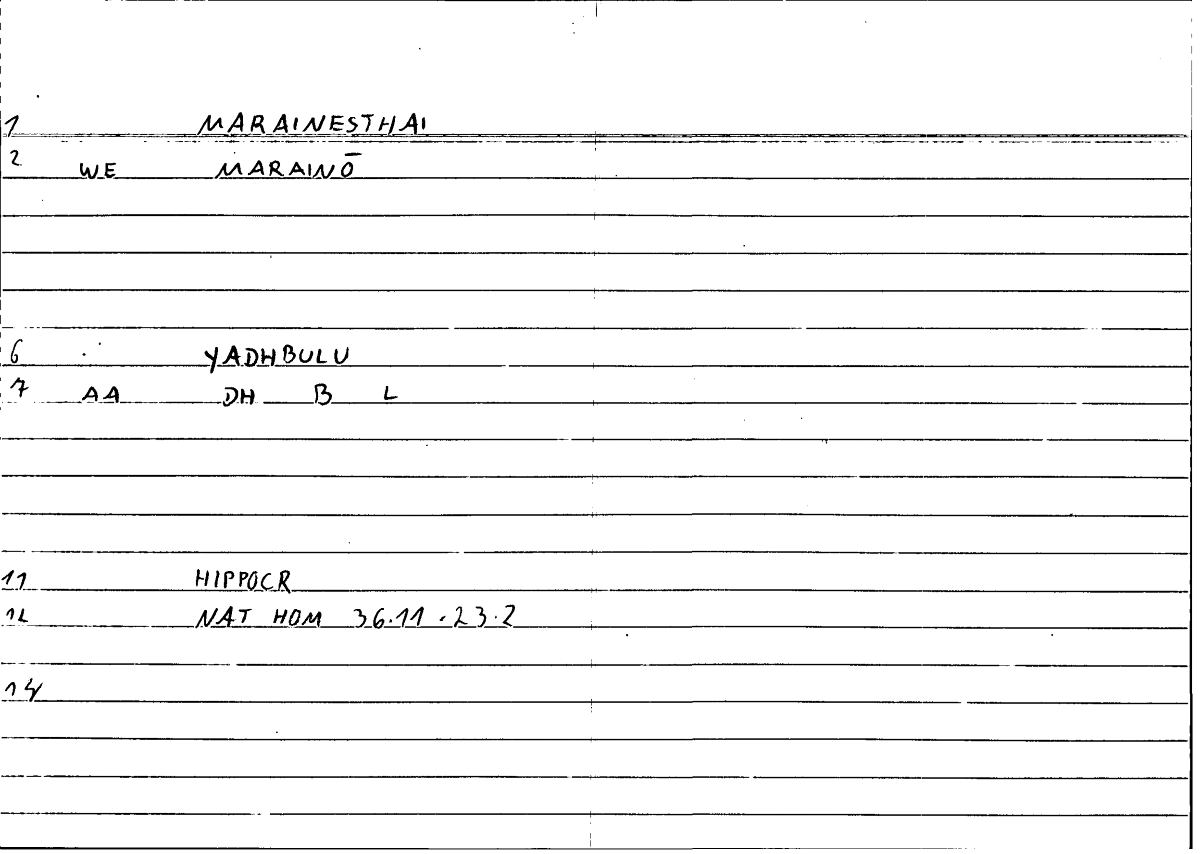 1 MARAINESTHAI
2 WE MARAINŌ
6 YADHBULU
7 AA DH B L
11 HIPPOCR
12 NAT HOM 36.11.23.2
14